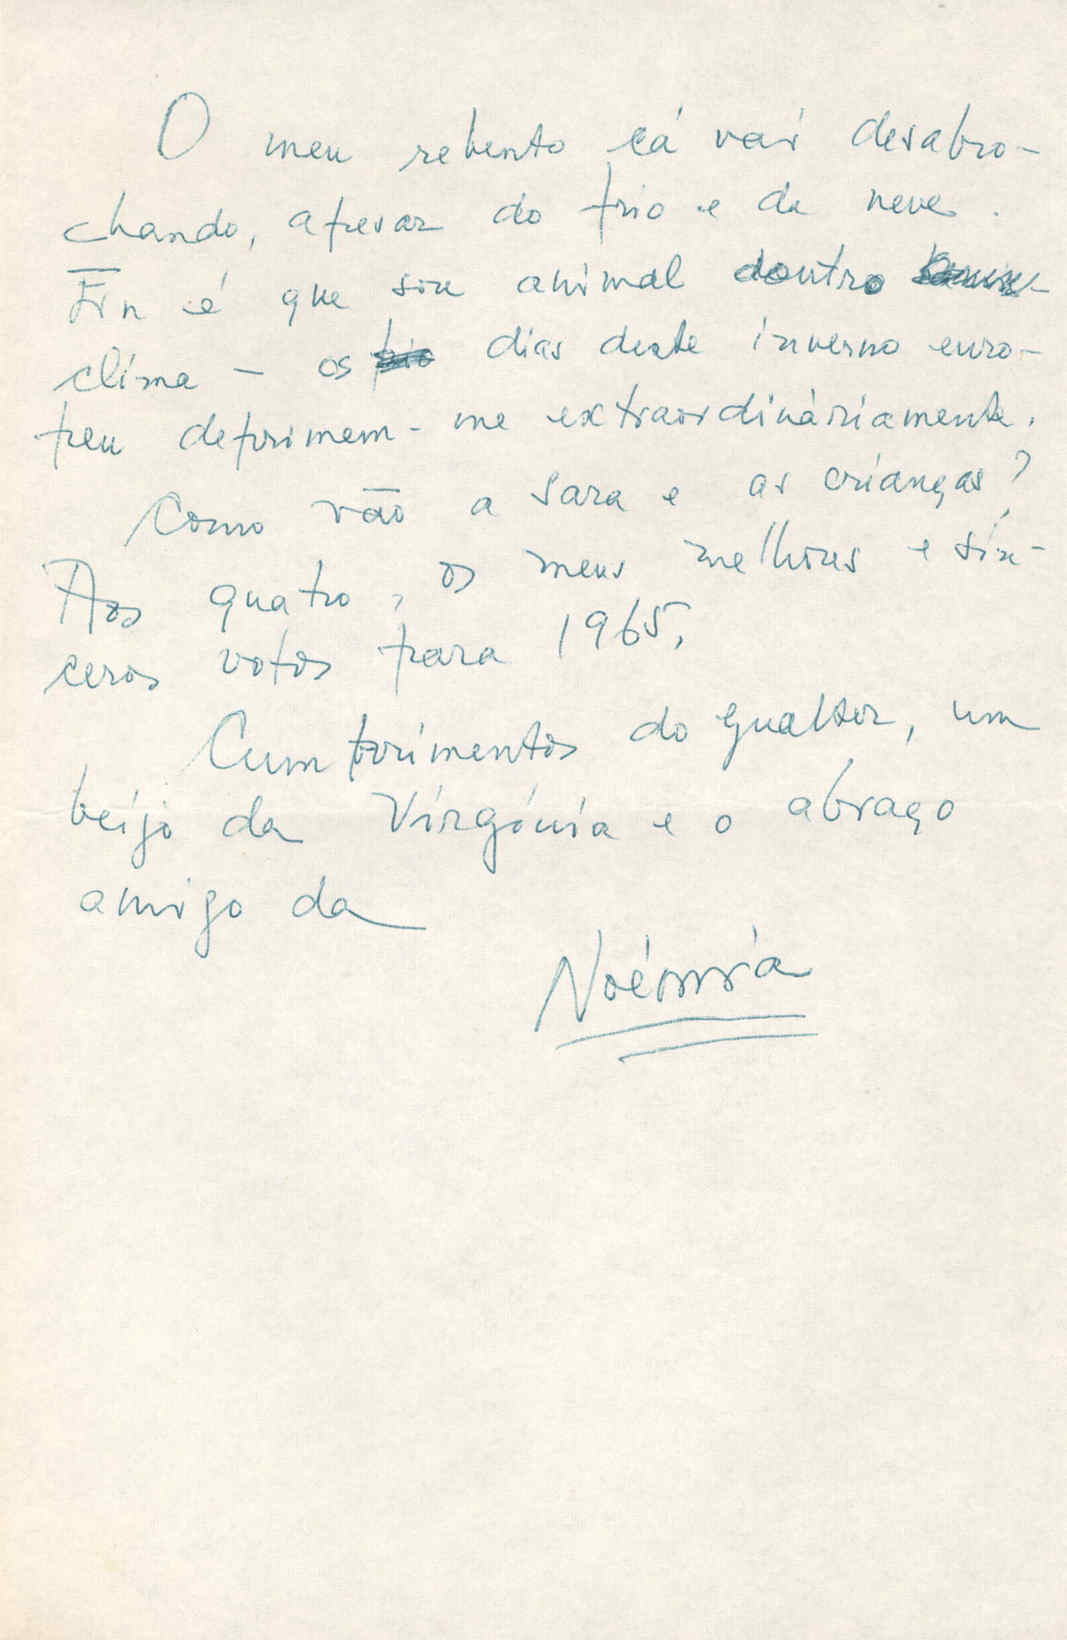 O meu rebento cá vai desabro-
chando, apesar do frio e da neve.
Eu é que sou animal doutro
clima – os dias deste inverno euro-
peu deprimem-me extraordinàriamente.
Como vão a Sara e as crianças?
Aos quatro, os meus melhores e sin-
ceros votos para 1965.
Cumprimentos do Gualter, um
beijo da Virgínia e o abraço
amigo da
Noémia